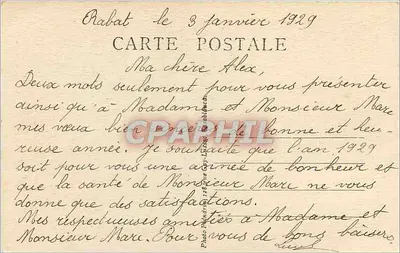 Rabat le 3 janvier 1929
CARTE POSTALE
Ma chère Alex,
Deux mots seulement pour vous présenter
ainsi qu'à Madame et Monsieur Marc
mes vœux bien sincères de bonne et heu-
reuse année. Je souhaite que l'an 1929
soit pour vous une année de bonheur et
que la santé de Monsieur Marc ne vous
donne que des satisfactions.
Mes respectueuses amitiés à Madame et
Monsieur Marc. Pour vous de bons baisers
CPARPHIL